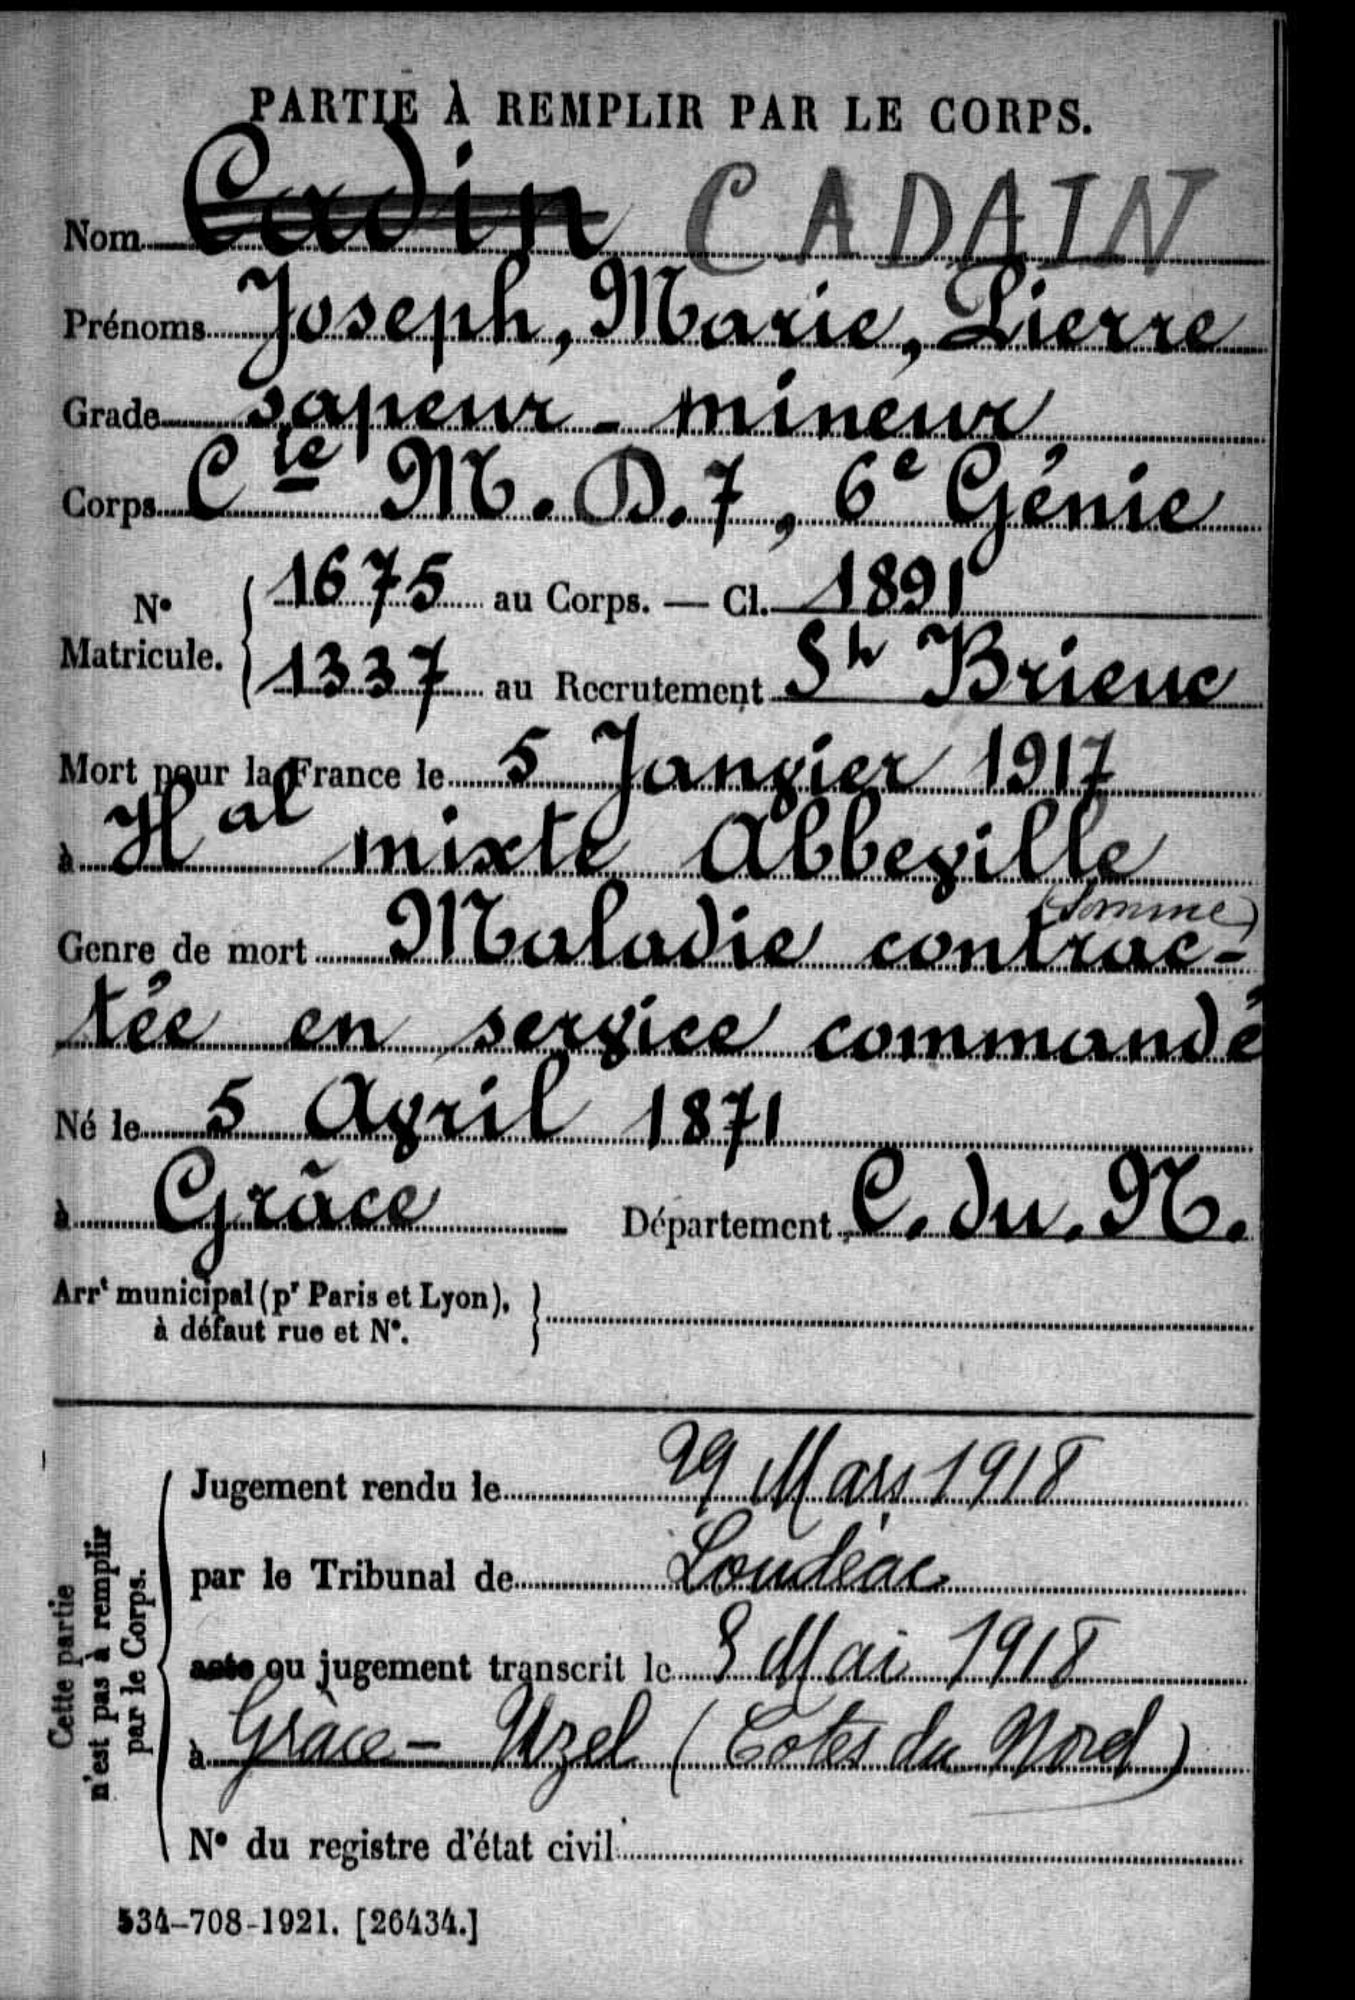 PARTIE À REMPLIR PAR LE CORPS.
Nom Cadin CADAIN
Prénoms Joseph, Marie, Pierre
Grade sapeur - mineur
Corps Cie M. D. 7, 6e Génie
No Matricule. { 1675 au Corps. — Cl. 1891
1337 au Recrutement St Brieuc
Mort pour la France le 5 Janvier 1917
à Hal mixte Abbeville
(Somme)
Genre de mort Maladie contrac-
tée en service commandé
Né le 5 Avril 1871
à Grâce Département C. du. N.
Arrt municipal (pr Paris et Lyon), }
à défaut rue et No.
Cette partie
n'est pas à remplir
par le Corps.
Jugement rendu le 29 Mars 1918
par le Tribunal de Loudéac
acte ou jugement transcrit le 8 Mai 1918
à Grâce - Uzel (Cotes du Nord)
No du registre d'état civil
534-708-1921. [26434.]